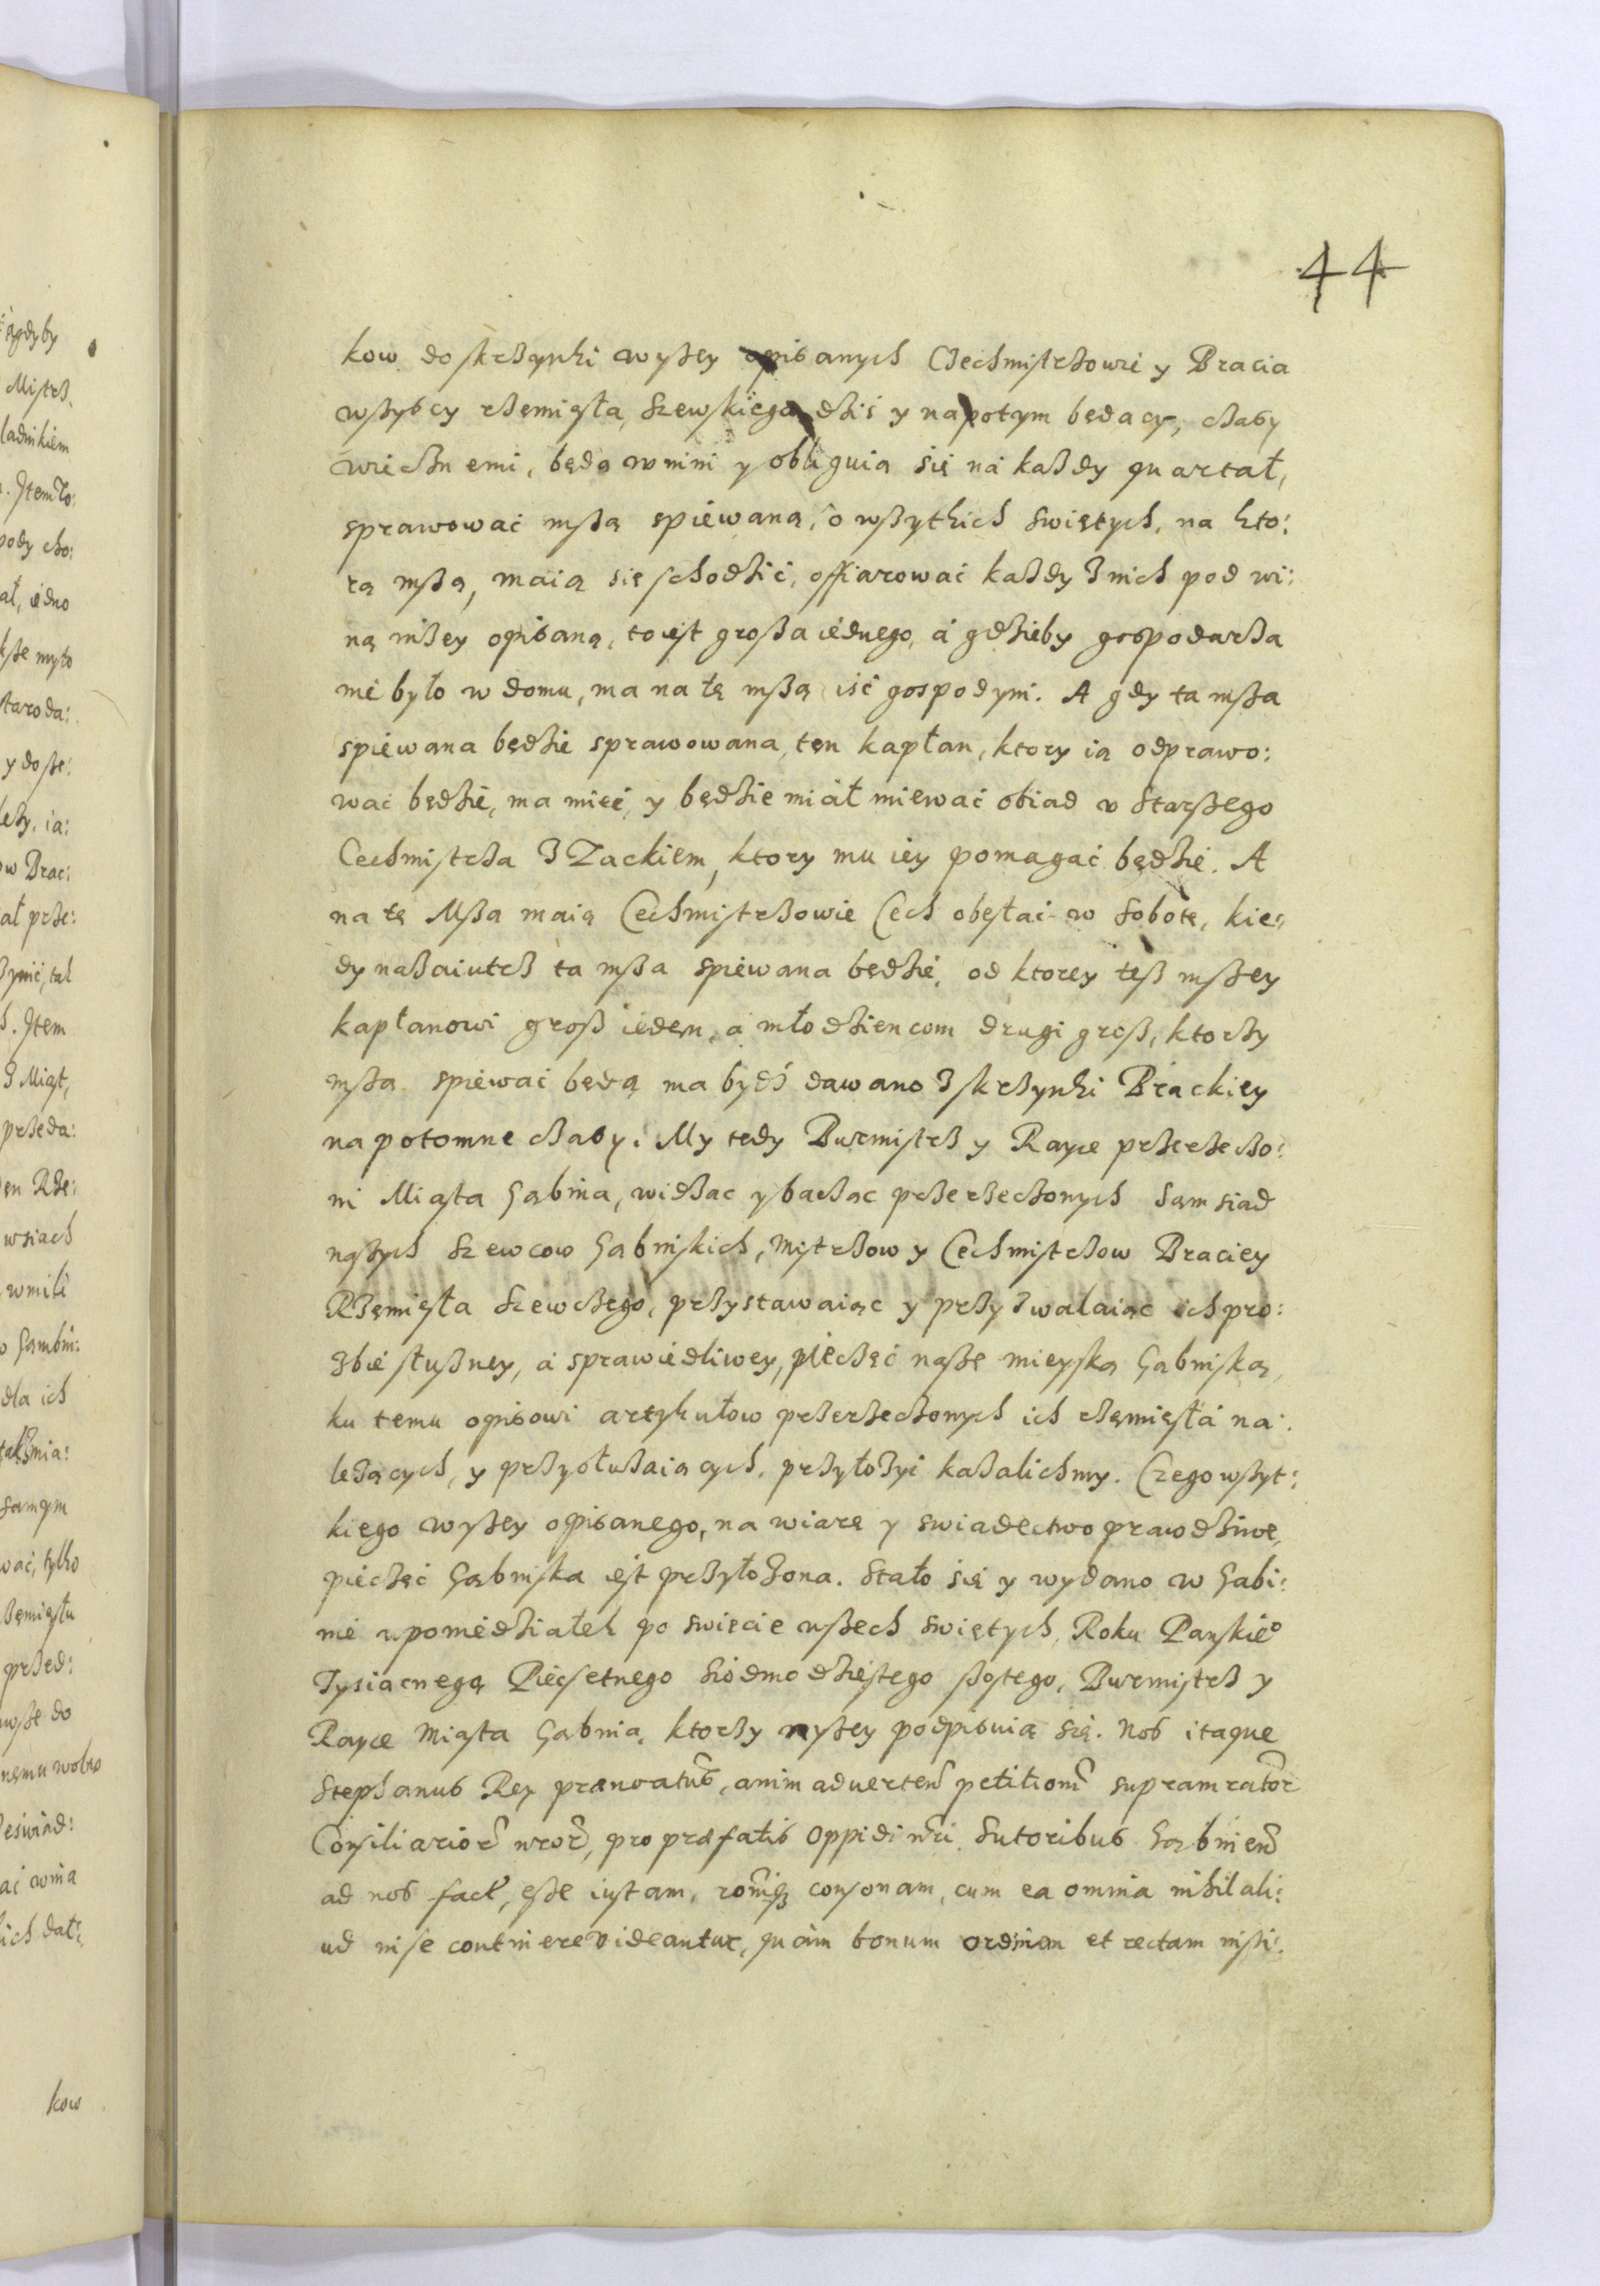 44
kow do skrzynki wyszey opisanych Czechmistrzowie y Bracia
wszyscy rzemięsła szewskiego dziś y napotym będący, czasy
wiecznemi, będą winni y obliguią się ná każdy quartał,
sprawowáć mszą spiewaną, o wszytkich swiętych, na kto:
rą mszą, maią się schodzić, offiarowáć każdy z nich pod wi:
ną niżey opisaną, to iest grosza iednego, á gdzieby gospodarza
nie było w domu, ma na tę mszą iść gospodyni. A gdy ta msza
spiewana będzie sprawowana, ten kapłan, ktory ią odprawo:
wać będzie, ma mieć, y będzie miał miewać obiad v starszego
Cechmistrza z Żackiem, ktory mu iey pomagáć będzie. A
na tę Mszą maią Cechmistrzowie Cech obesłać w sobotę, kie:
dy nazaiutrz ta msza spiewana będzie, od ktorey tesz mszey
kapłanowi grosz ieden, a młodziencom drugi grosz, ktorzy
mszą spiewać będą ma bydź dawano z skrzynki Brackiey
na potomne czasy. My tedy Burmistrz y Rayce przerzeczo:
ni Miasta Gąbina, widząc y bacząc przerzeczonych sąmsiad
naszych szewcow Gąbinskich, Mistrzow y Cechmistrzow Braciey
Rzemięsła szewczego, przystawaiąc y przyzwalaiąc ich pro:
zbie słuszney, á sprawiedliwey, pieczęć naszę mieyską Gąbinską,
ku temu opisowi artykułow przerzeczonych ich rzemięsłá na:
leżących, y przysłuszaiących, przyłożyć kazalichmy. Czego wszyt:
kiego wyszey opisanego, na wiarę y swiadectwo prawdziwe,
pieczęć Gąbinska iest przyłożona. Stało się y wydano w Gąbi:
nie w poniedziałek po swięcie wszech swiętych, Roku Panskieo
Tysiącnego Pięćsetnego siodmodziestego szostego, Burmistrz y
Rayce Miasta Gąbina, ktorzy wyszey podpisuią się. Nos itaque
Stephanus Rex prænoatus, animaduerten petitionem supramrator
Consiliarior nror, pro præfatis Oppidi nri Sutoribus Gąbinien
ad nos fact, esse iustam, roniq consonam, cum ea omnia nihil ali:
ud in se continere videantur, quàm bonum ordinem et rectam insti:
kow